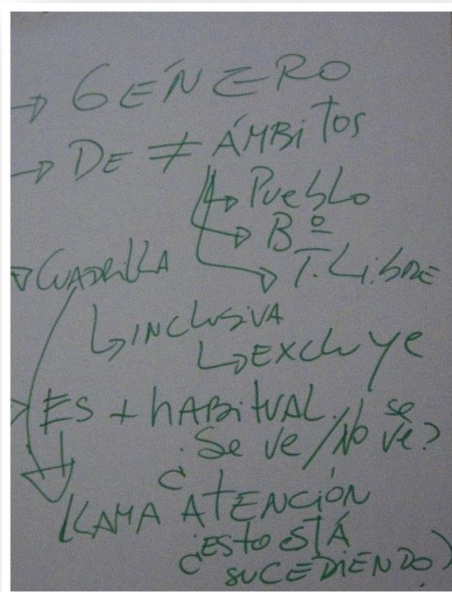 → GÉNERO
→ DE ≠ ÁMBITOS
→ PUEBLO
→ Bº
→ T. LIBRE
→ CUADRILLA
↳ INCLUSIVA
↳ EXCLUYE
> ES + HABITUAL.
¿Se ve / No se ve?
LLAMA ATENCIÓN
¿ESTO STÁ
SUCEDIENDO?